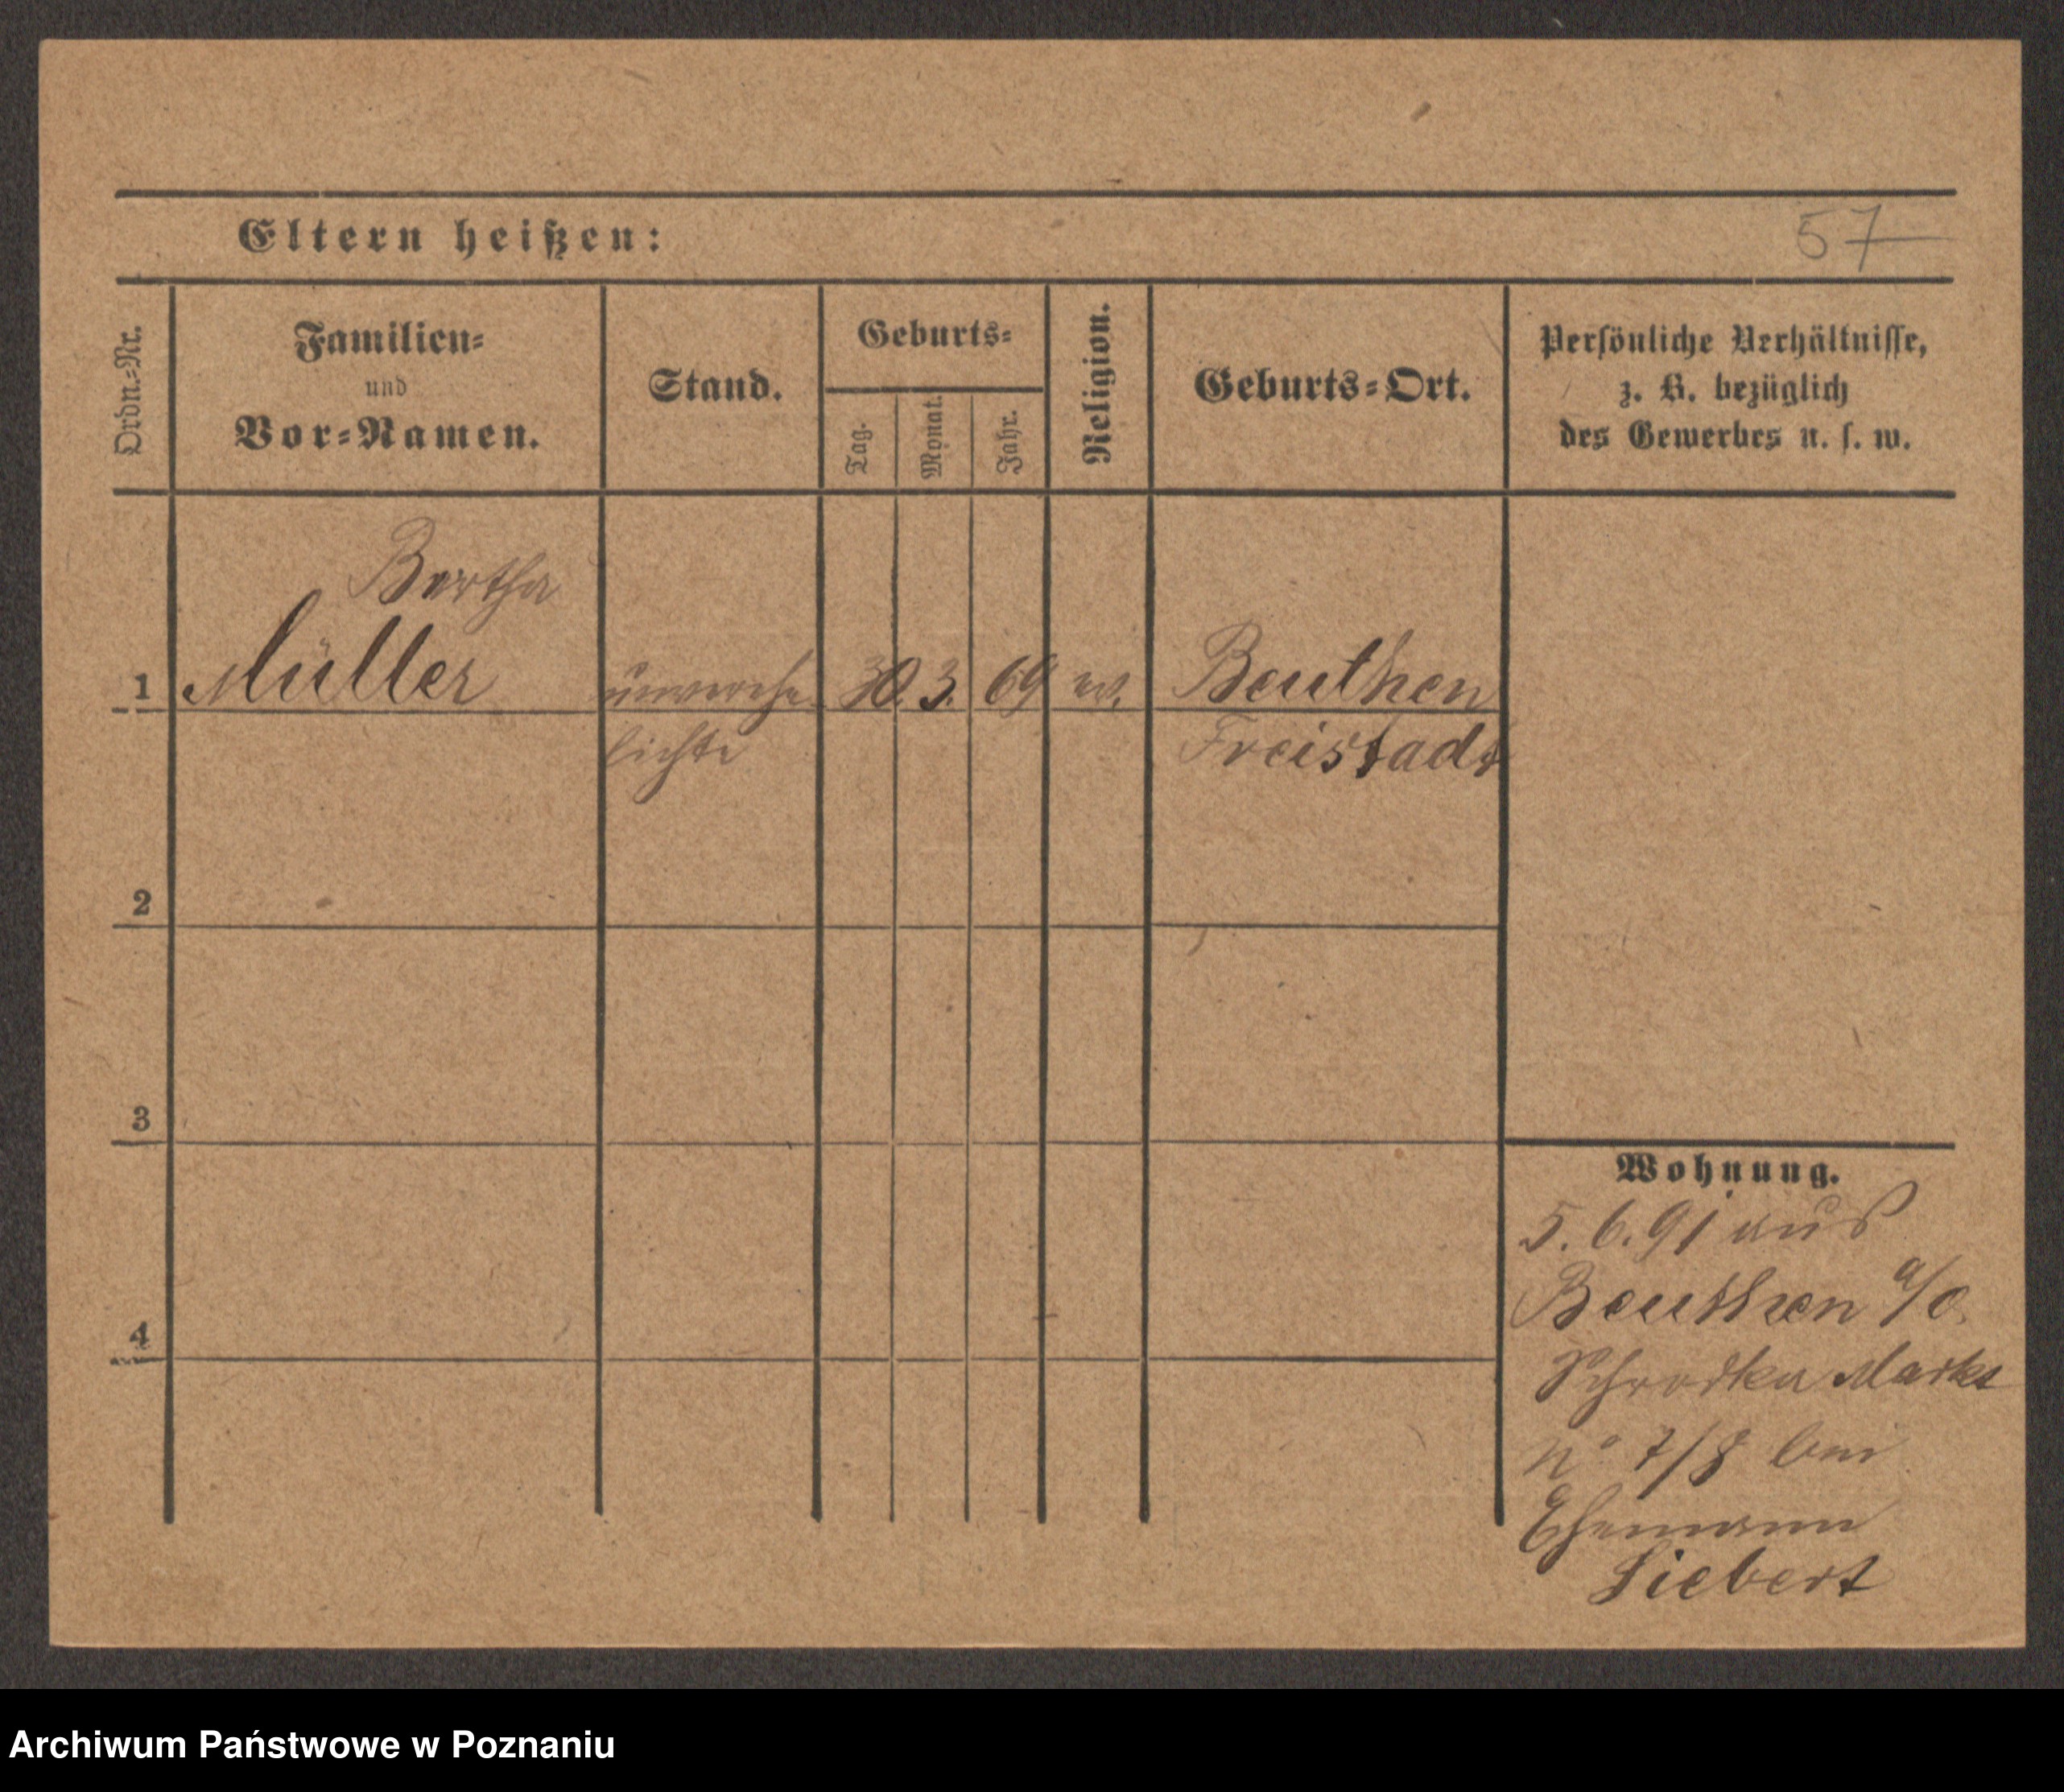 Eltern heißen:
57
Ordn.-Nr.
Familien-
und
Vor-Namen.
Stand.
Geburts-
Tag.
Monat.
Jahr.
Religion.
Geburts-Ort.
Persönliche Verhältnisse,
z. B. bezüglich
des Gewerbes u. s. w.
Bertha
1 Müller unverehe 30. 3. 69 ev. Beuthen
lichte Freistadt
2
3
4
Wohnung.
5. 6. 91 aus
Beuthen a/O.
Schrodka Markt
No 7/8 bei
Ehemann
Siebert
Archiwum Państwowe w Poznaniu